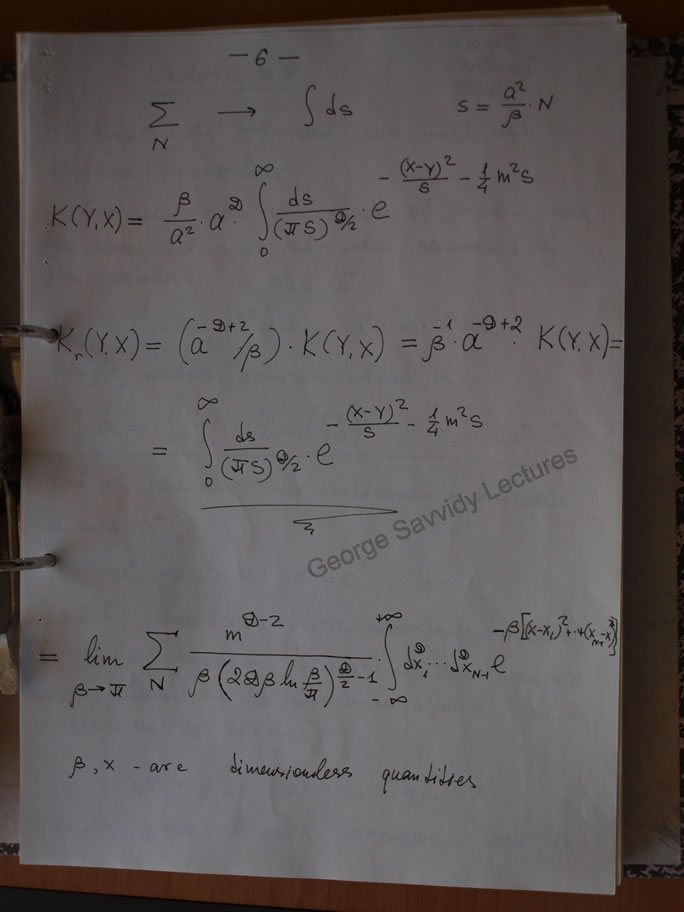 - 6 -
∑_N → ∫ ds    s = a²/β · N
K(Y,X) = β/a² · a^D · ∫_0^∞ ds/(πs)^{D/2} · e^{-(X-Y)²/s - 1/4 m²s}
K_r(Y.X) = (a^{-D+2}/β) · K(Y,X) = β^{-1} · a^{-D+2} · K(Y.X) =
= ∫_0^∞ ds/(πs)^{D/2} · e^{-(X-Y)²/s - 1/4 m²s}
George Savvidy Lectures
= lim_{β→π} ∑_N m^{D-2}/β(2Dβ ln β/π)^{D/2 - 1} · ∫_{-∞}^{+∞} dx_1^D ... dx_{N-1}^D e^{-β[(x-x_1)²+..+(x_{N-1}-x)²]}
β, x - are dimensionless quantities